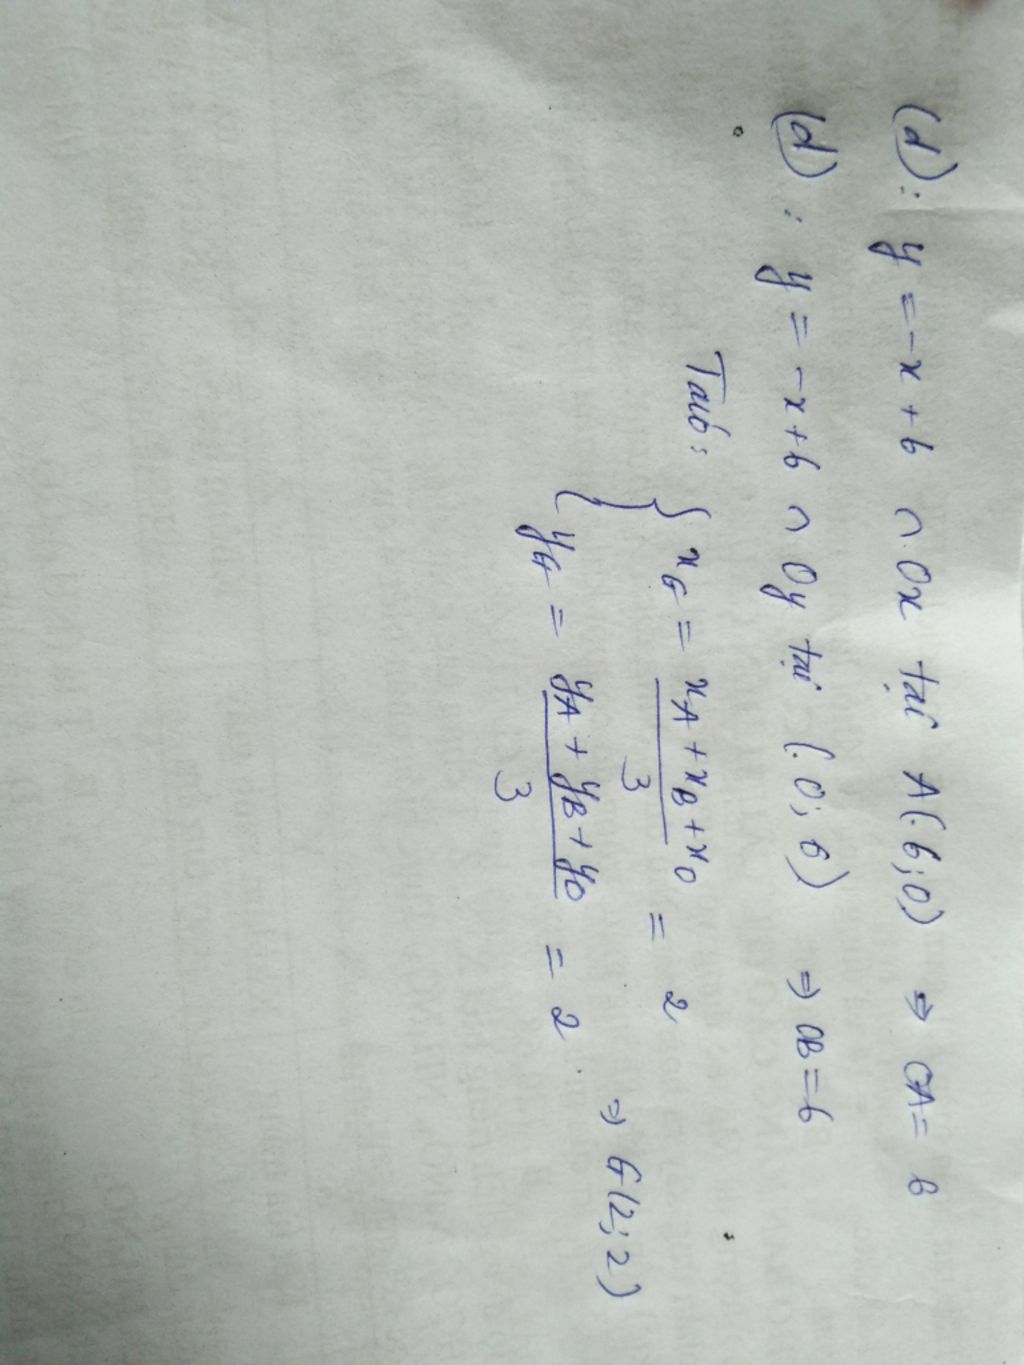 (d): y = -x + 6 ∩ Ox tại A(6;0) ⇒ OA = 6
(d): y = -x + 6 ∩ Oy tại (0; 6) ⇒ OB = 6
Ta có: { xG = (xA + xB + xO)/3 = 2
{ yG = (yA + yB + yO)/3 = 2 ⇒ G(2; 2)